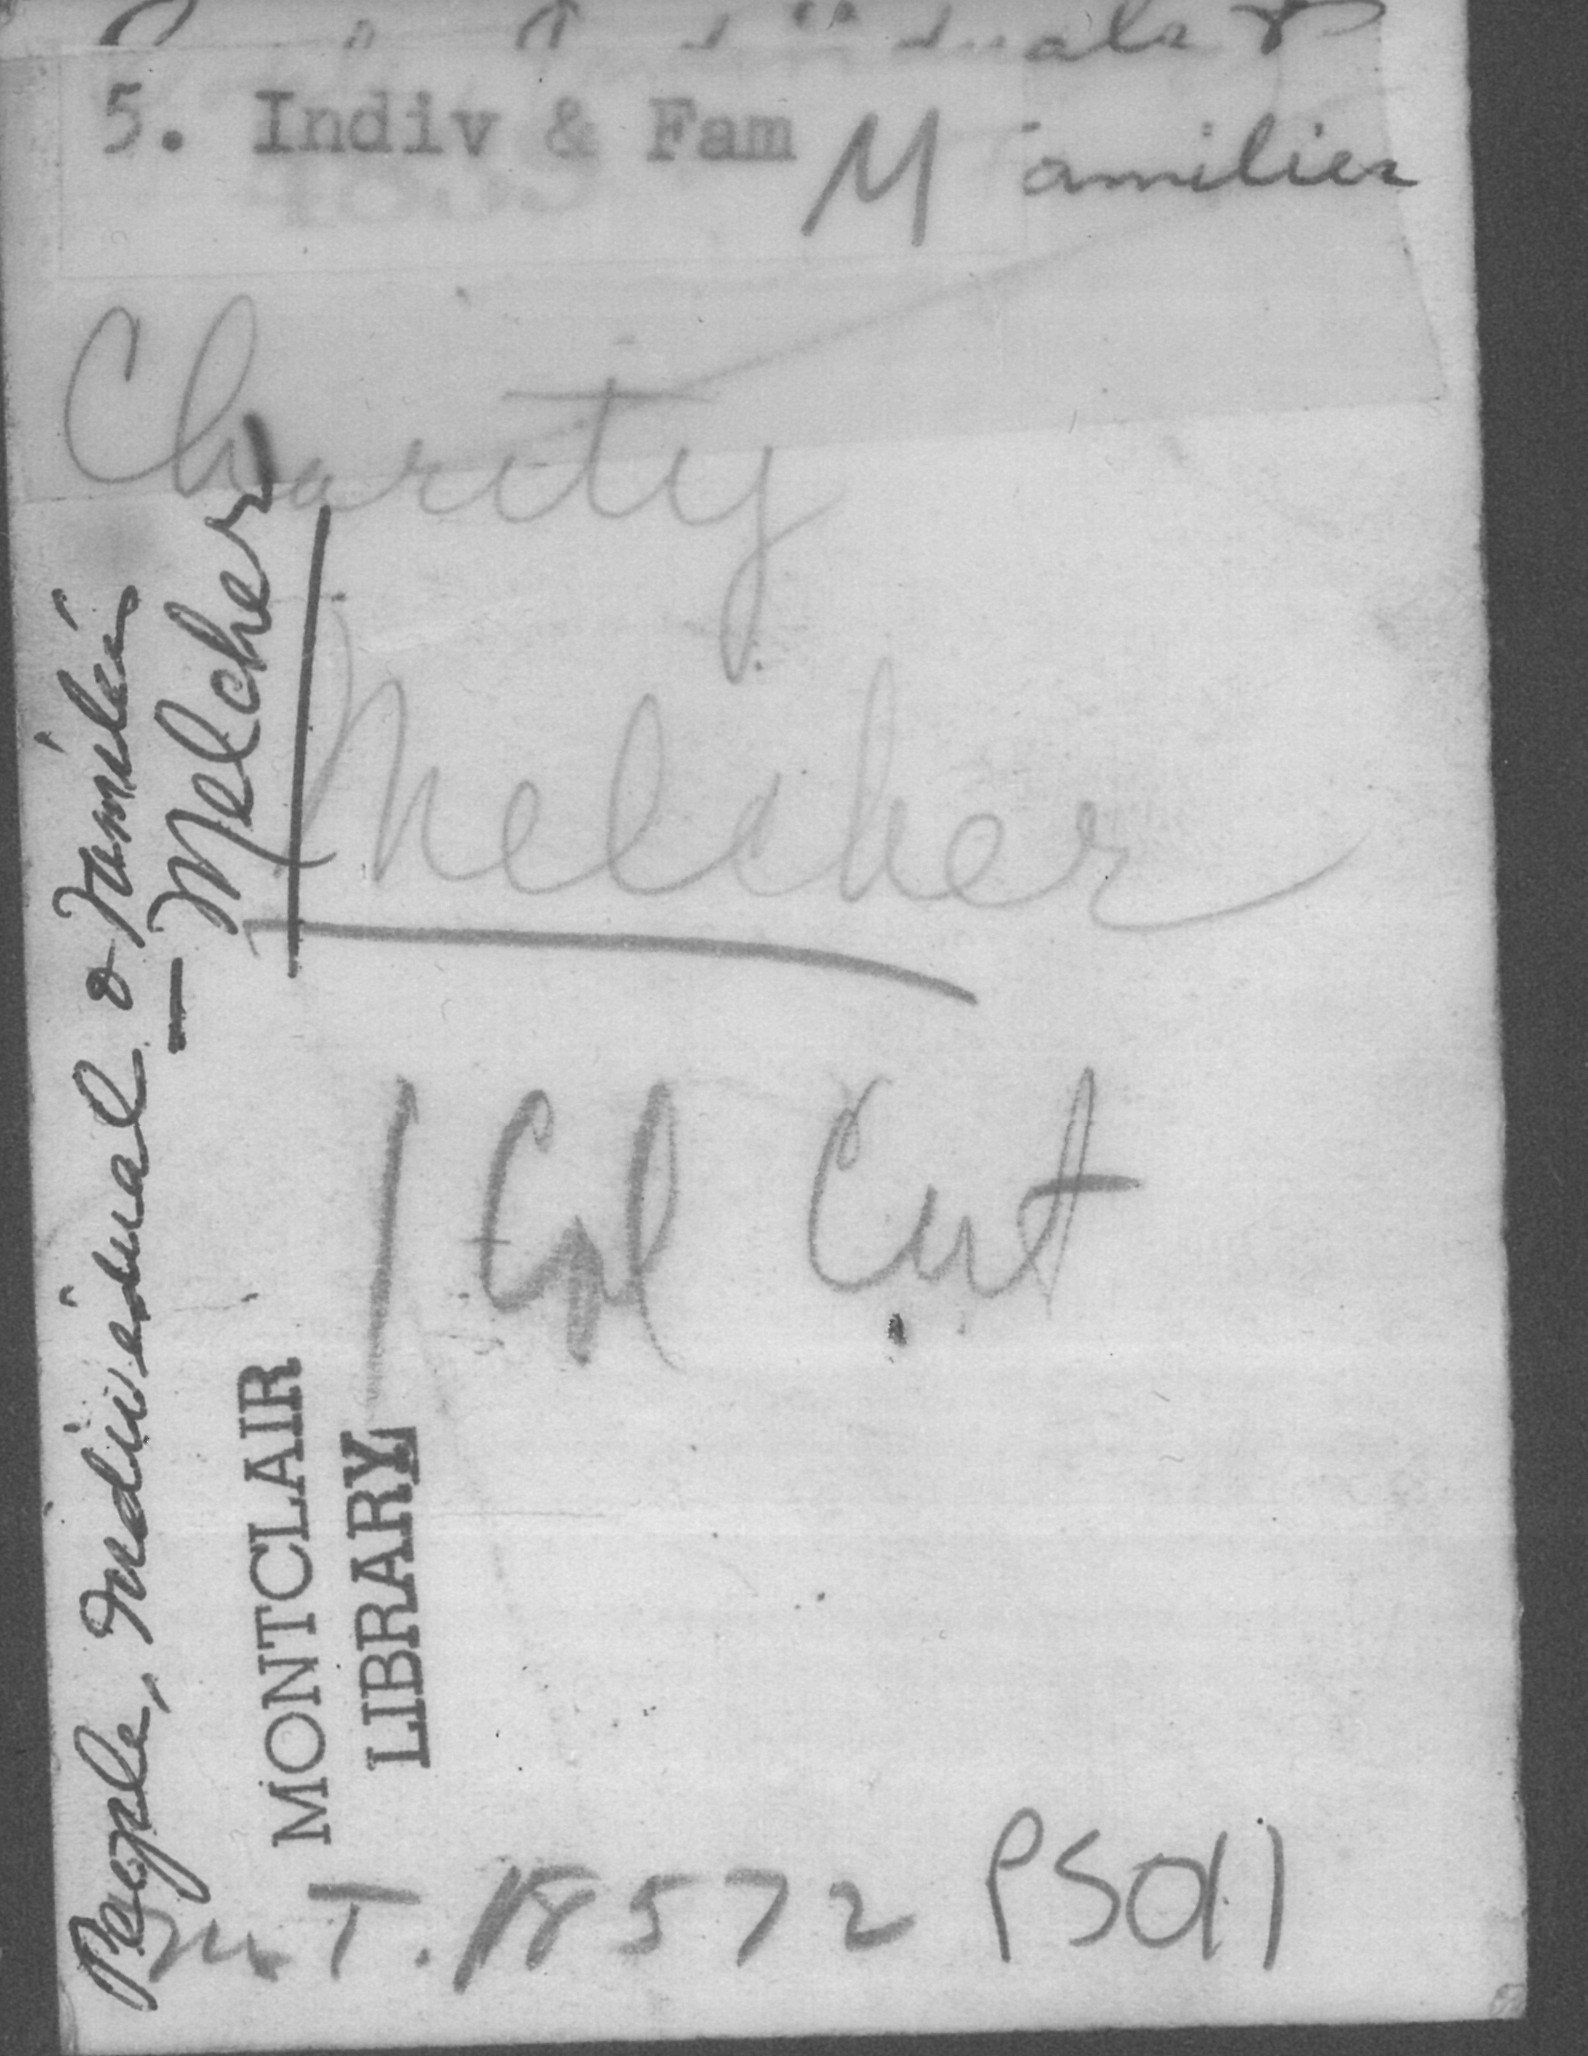 5. Indiv & Fam M amilies
Charity
Melcher
1 Col Cut
People, Individual & Families
— Melcher
MONTCLAIR
LIBRARY
M.T. 18572 PS011